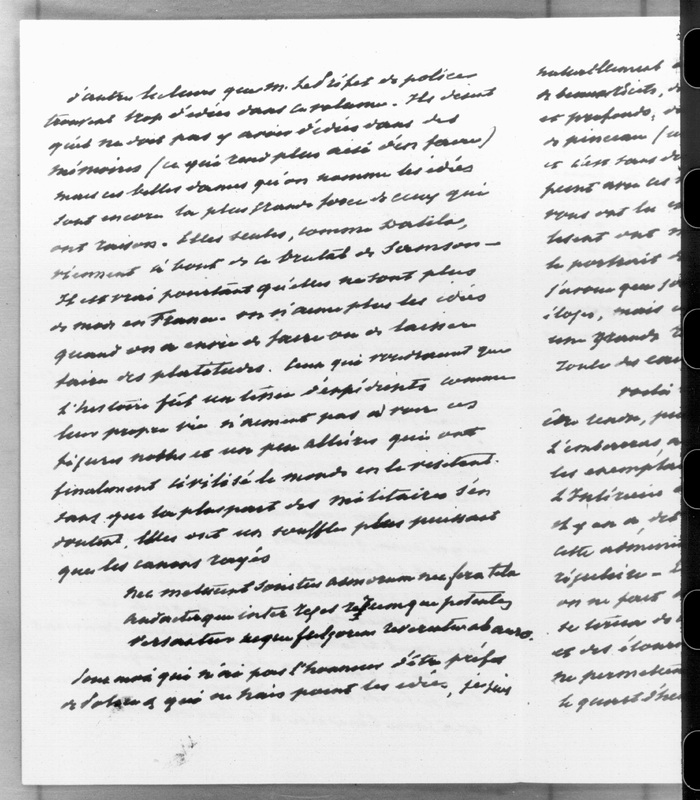 d'autres lecteurs que M. Le Préfet de police
trouvent trop d'idées dans ce volume. Ils disent
qu'il ne doit pas y avoir d'idées dans des
mémoires (ce qui rend plus aisé d'en faire)
mais ces belles dames qu'on nomme les idées
sont encore la plus grande force de ceux qui
ont raison. Elles seules, comme Dalila,
viennent à bout de ce brutal de Samson –
Il est vrai pourtant qu'elles ne sont plus
de mode en France. on n'aime plus les idées
quand on a envie de faire ou de laisser
faire des platitudes. Ceux qui voudraient que
l'histoire fût un tissu d'expédients comme
leur propre vie n'aiment pas à voir ces
figures nobles et un peu altières qui ont
finalement civilisé le monde en le visitant.
sans que la pluspart des militaires s'en
doutent. Elles ont un souffle plus puissant
que les canons rayés
nec metuunt sonitus armorum nec fera tela
audacterque inter reges rerumque potentes
versantur neque fulgorem reverentur ab auro.
Pour moi qui n'ai pas l'honneur d'être préfet
de Police & qui ne hais point les idées, je suis
naturellement
de beaux récits, de
et profonds, de
de pinceau (ce
et c'est sans d
peint avec ces
vous ont lu
lisent ont
le portrait d
j'avoue que j'
éloges, mais
une grande
toute des
voilà
être tendu, p
L'embarras
les exemplaires
L'Intérieur
il y en a, des
cette admini
régulière –
on ne peut
se tirera de
et des étour
ne permettent
le quart d'heu